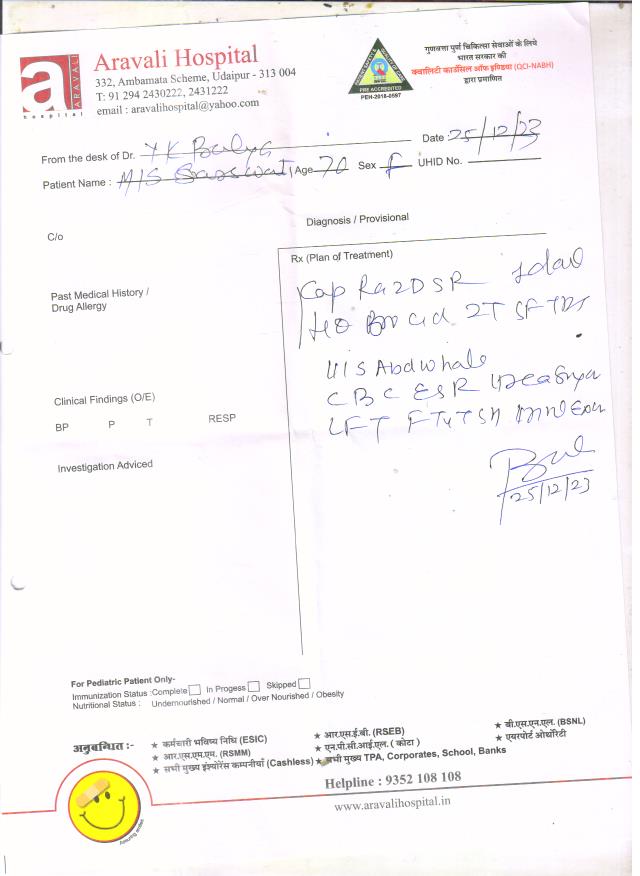 a
ARAVALI
hospital
Aravali Hospital
332, Ambamata Scheme, Udaipur - 313 004
T: 91 294 2430222, 2431222
email : aravalihospital@yahoo.com
PRE ACCREDITED
PEH-2018-0597
गुणवत्ता पुर्ण चिकित्सा सेवाओं के लिये
भारत सरकार की
क्वालिटी काउंसिल ऑफ इण्डिया (QCI-NABH)
द्वारा प्रमाणित
From the desk of Dr. Y K
Date : 25/12/23
Patient Name : M/S Age 70 Sex F UHID No.
C/o
Diagnosis / Provisional
Rx (Plan of Treatment)
Cap Raz DSR
Past Medical History /
Drug Allergy
U/S Abd Whole
CBC ESR
LFT
Clinical Findings (O/E)
BP P T RESP
Investigation Adviced
25/12/23
For Pediatric Patient Only-
Immunization Status : Complete In Progess Skipped
Nutritional Status : Undernourished / Normal / Over Nourished / Obesity
अनुबन्धित :-
★ कर्मचारी भविष्य निधि (ESIC) ★ आर.एस.ई.बी. (RSEB) ★ बी.एस.एन.एल. (BSNL)
★ आर.एस.एम.एम. (RSMM) ★ एन.पी.सी.आई.एल. ( कोटा ) ★ एयरपोर्ट ऑथोरिटी
★ सभी मुख्य इंश्योरेंस कम्पनीयाँ (Cashless) ★ सभी मुख्य TPA, Corporates, School, Banks
Helpline : 9352 108 108
www.aravalihospital.in